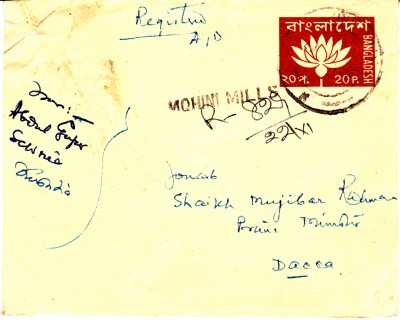 Registered
A/D
বাংলাদেশ
BANGLADESH
২০ প.
20 P.
MOHINI MILLS
R- 829
22/XI
Abdul Gafur
Janab
Shaikh Mujibar Rahman
Prime Minister
Dacca